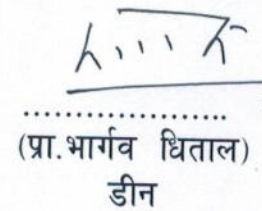 ....................
(प्रा.भार्गव धिताल)
डीन